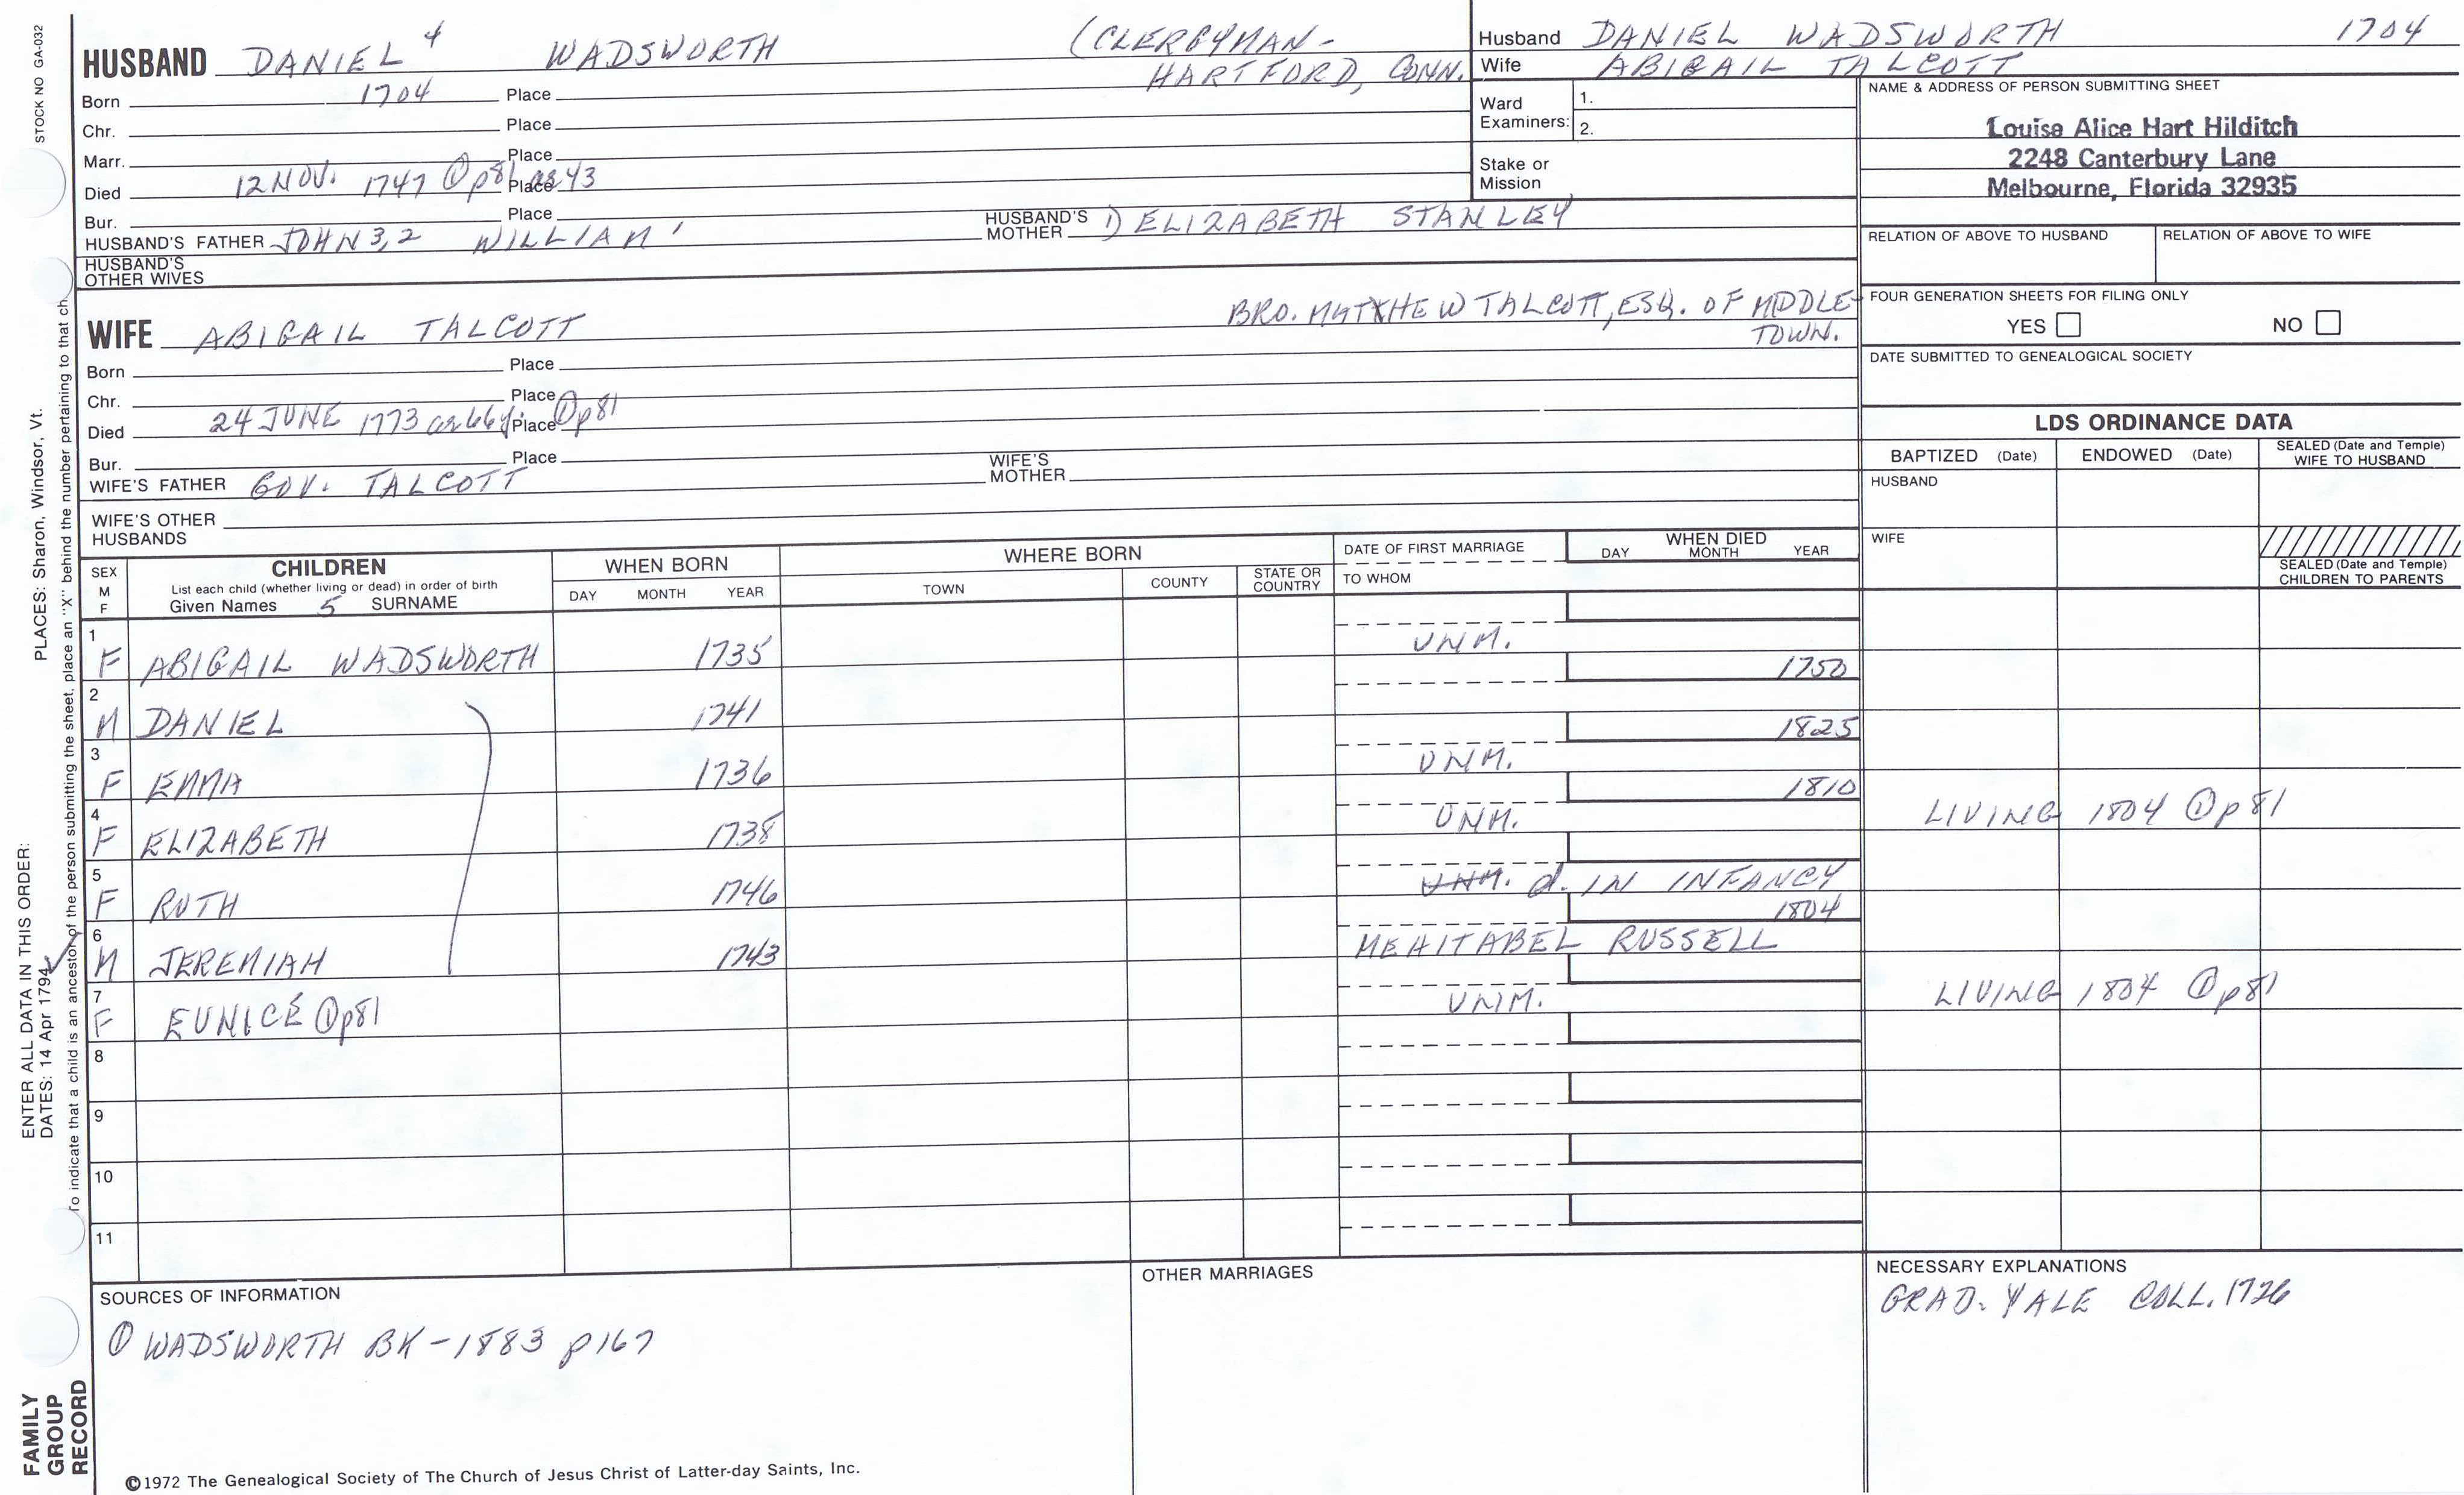 STOCK NO GA-032
HUSBAND DANIEL 4 WADSWORTH (CLERGYMAN -
HARTFORD, CONN.
Born 1704 Place
Chr. Place
Marr. Place
Died 12 NOV. 1747 ① p81 ae 43 Place
Bur. Place
HUSBAND'S FATHER JOHN 3,2 WILLIAM 1 HUSBAND'S MOTHER 1) ELIZABETH STANLEY
HUSBAND'S
OTHER WIVES
Husband DANIEL WADSWORTH 1704
Wife ABIGAIL TALCOTT
Ward
Examiners:
1.
2.
Stake or
Mission
NAME & ADDRESS OF PERSON SUBMITTING SHEET
Louise Alice Hart Hilditch
2248 Canterbury Lane
Melbourne, Florida 32935
RELATION OF ABOVE TO HUSBAND RELATION OF ABOVE TO WIFE
WIFE ABIGAIL TALCOTT BRO. MATTHEW TALCOTT, ESQ. OF MIDDLE-
TOWN.
Born Place
Chr. Place
Died 24 JUNE 1773 ae 66y. Place ① p81
Bur. Place
WIFE'S FATHER GOV. TALCOTT WIFE'S MOTHER
WIFE'S OTHER
HUSBANDS
FOUR GENERATION SHEETS FOR FILING ONLY
YES NO
DATE SUBMITTED TO GENEALOGICAL SOCIETY
LDS ORDINANCE DATA
BAPTIZED (Date) ENDOWED (Date) SEALED (Date and Temple)
WIFE TO HUSBAND
HUSBAND
WIFE
SEALED (Date and Temple)
CHILDREN TO PARENTS
SEX
M
F
CHILDREN
List each child (whether living or dead) in order of birth
Given Names 5 SURNAME
WHEN BORN
DAY MONTH YEAR
WHERE BORN
TOWN COUNTY STATE OR
COUNTRY
DATE OF FIRST MARRIAGE
TO WHOM
WHEN DIED
DAY MONTH YEAR
1 F ABIGAIL WADSWORTH 1735 UNM. 1750
2 M DANIEL 1741 1825
3 F EMMA 1736 UNM. 1810
4 F ELIZABETH 1738 UNM. LIVING 1804 ① p81
5 F RUTH 1746 UNM. d. IN INFANCY
6 M JEREMIAH 1743 MEHITABEL RUSSELL 1804
7 F EUNICE ① p81 UNM. LIVING 1804 ① p81
8
9
10
11
SOURCES OF INFORMATION
① WADSWORTH BK - 1883 p167
OTHER MARRIAGES
NECESSARY EXPLANATIONS
GRAD. YALE COLL. 1726
©1972 The Genealogical Society of The Church of Jesus Christ of Latter-day Saints, Inc.
FAMILY
GROUP
RECORD
ENTER ALL DATA IN THIS ORDER:
DATES: 14 Apr 1794
PLACES: Sharon, Windsor, Vt.
To indicate that a child is an ancestor of the person submitting the sheet, place an "X" behind the number pertaining to that ch